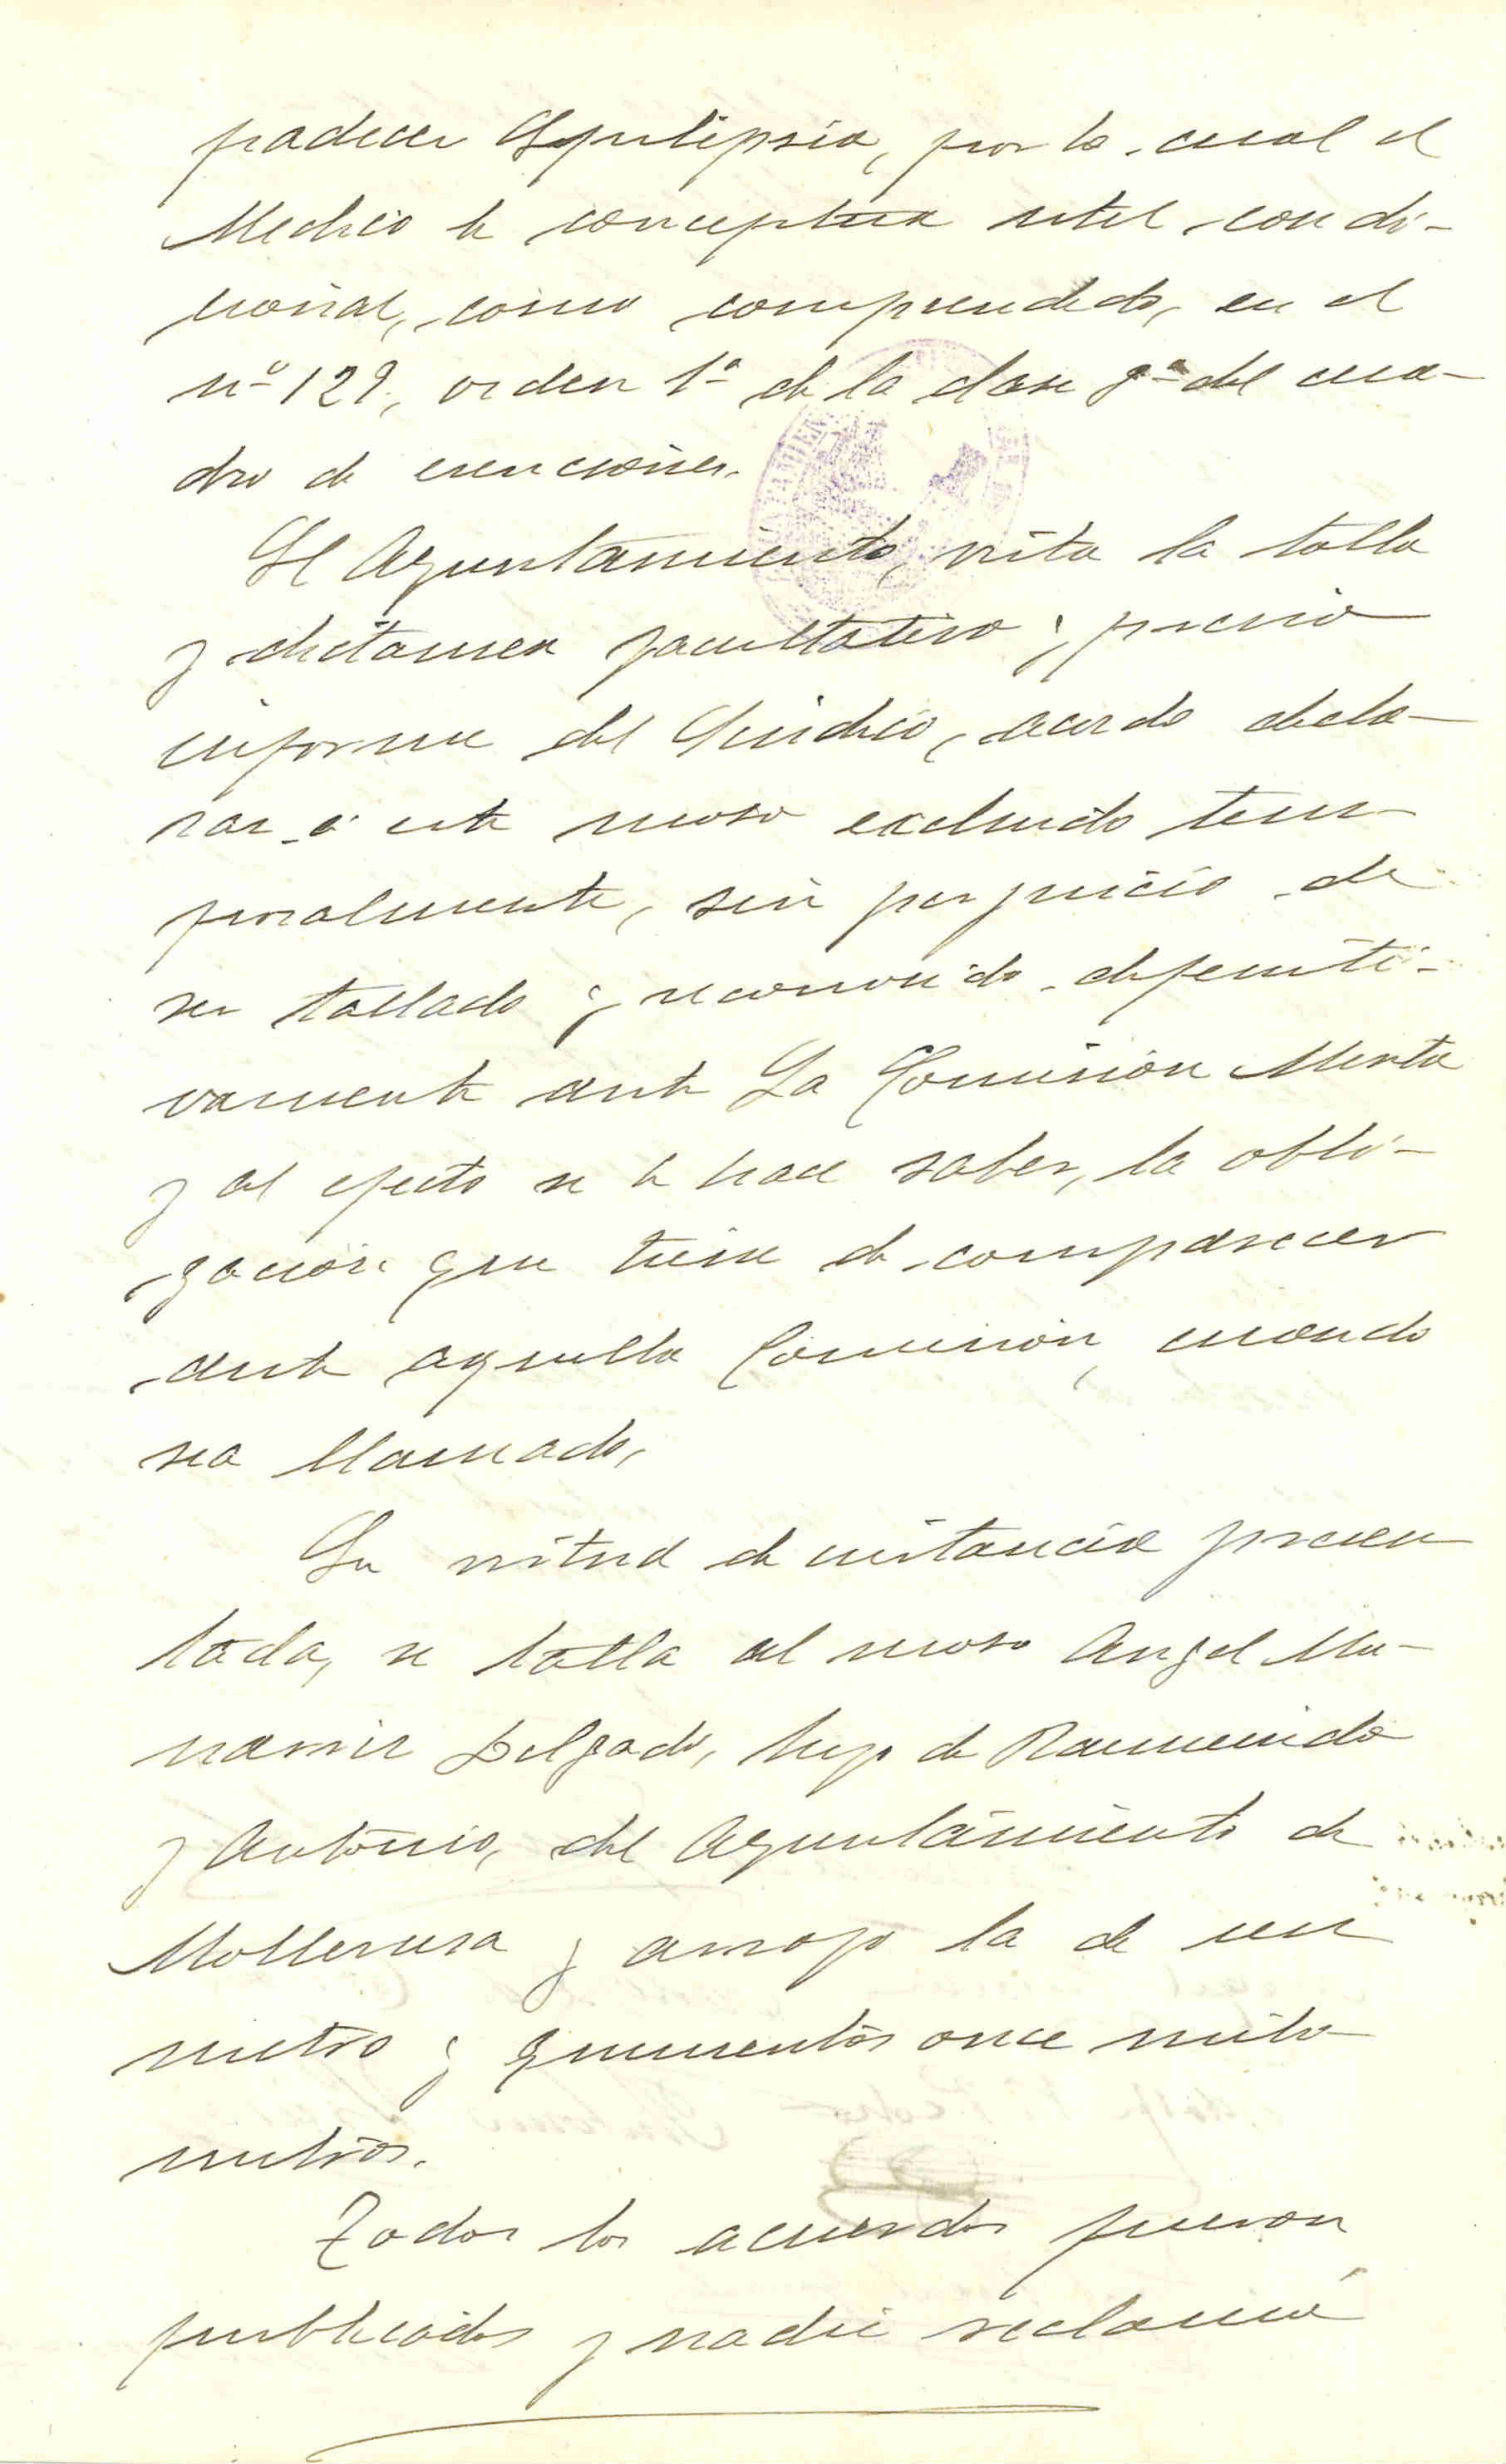 padecer Epilepsia, por lo cual el
Medico le conceptua util condi-
cional, como comprendido, en el
nº 129, orden 1º de la clase 3ª del cua-
dro de exenciones.
El Ayuntamiento, vista la talla
y dictamen facultativo y previo
informe del Sindico, acordo decla-
rar á este mozo excluido tem-
poralmente, sin perjuicio de
ser tallado y reconocido definiti-
vamente ante La Comisión Mixta
y al efecto se le hace saber, la obli-
gación que tiene de comparecer
ante aquella Comisión, cuando
sea llamado,
En virtud de instancia presen
tada, se talla al mozo Angel
Delgado, hijo de Raimundo
y Antonia, del Ayuntamiento de
Mollerusa y arrojo la de un
metro y quinientos once mili-
metros.
Todos los acuerdos fueron
publicados y nadie reclamó